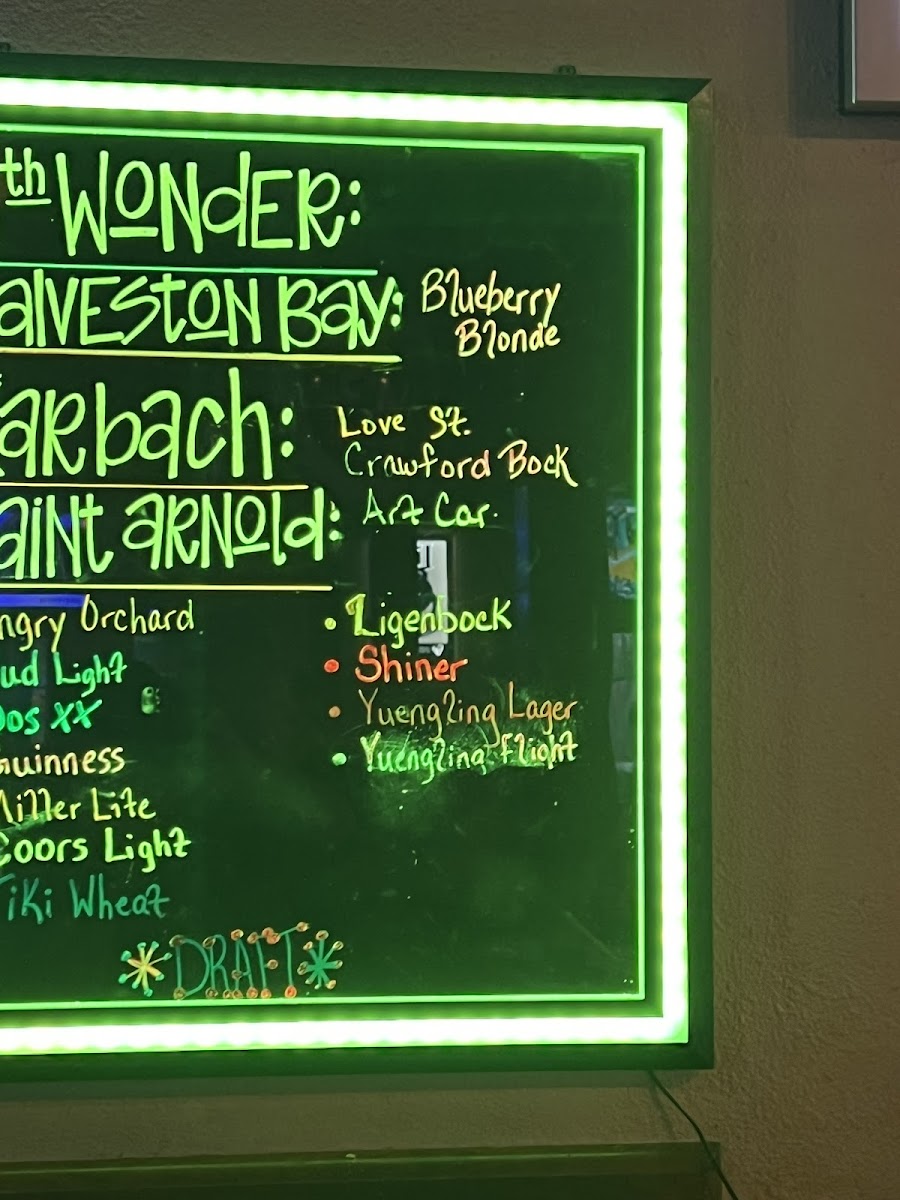 th WONDER:
alVESTON Bay: Blueberry
Blonde
arbach: Love St.
Crawford Bock
aiNt aRNOld: Art Car.
ngry Orchard
ud Light
Dos XX
Guinness
Miller Lite
Coors Light
Tiki Wheat
• Zigenbock
• Shiner
• Yuengling Lager
• Yuengling Flight
*DRAFT*